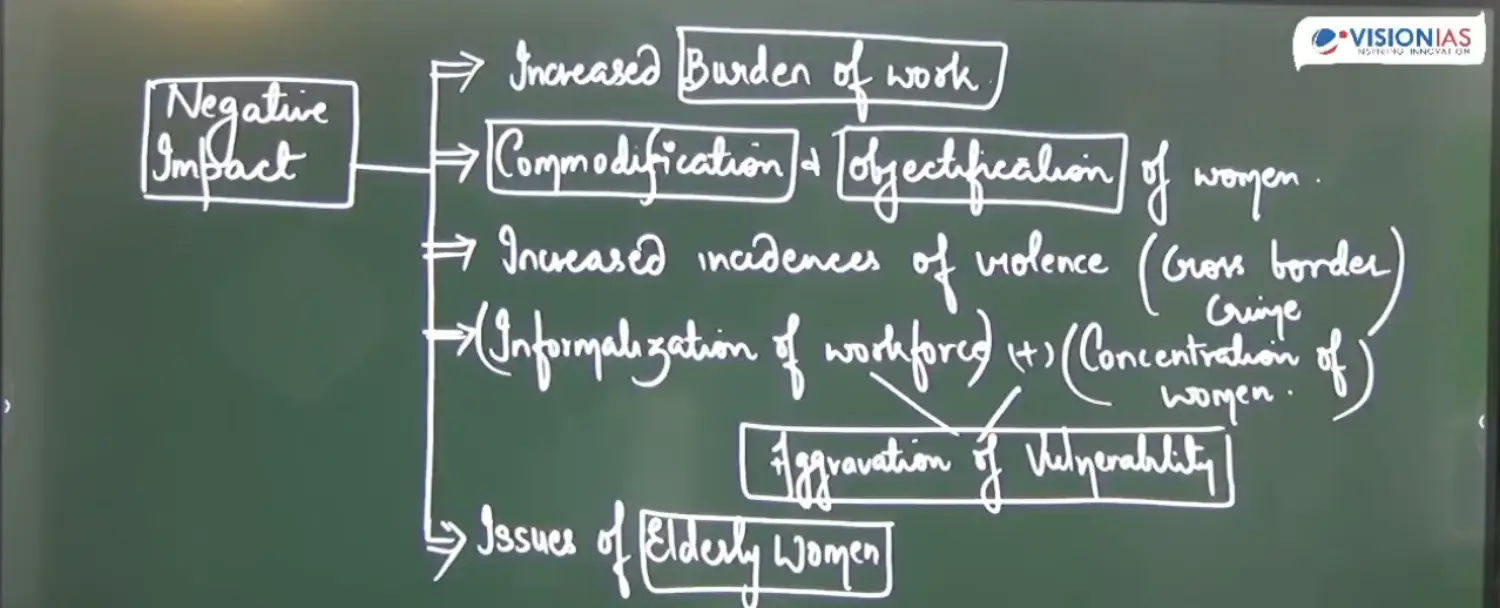 VISIONIAS
INSPIRING INNOVATION
Negative
Impact
Increased Burden of work.
Commodification & Objectification of women.
Increased incidences of violence (Cross border
crime)
(Informalization of workforce) (+) (Concentration of
women.)
Aggravation of Vulnerability
Issues of Elderly Women